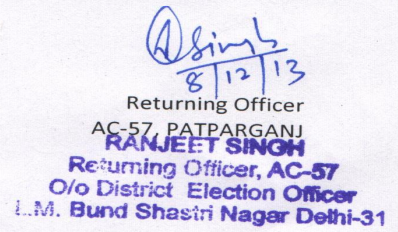 Singh
8/12/13
Returning Officer
AC-57, PATPARGANJ
RANJEET SINGH
Returning Officer, AC-57
O/o District Election Officer
L.M. Bund Shastri Nagar Delhi-31